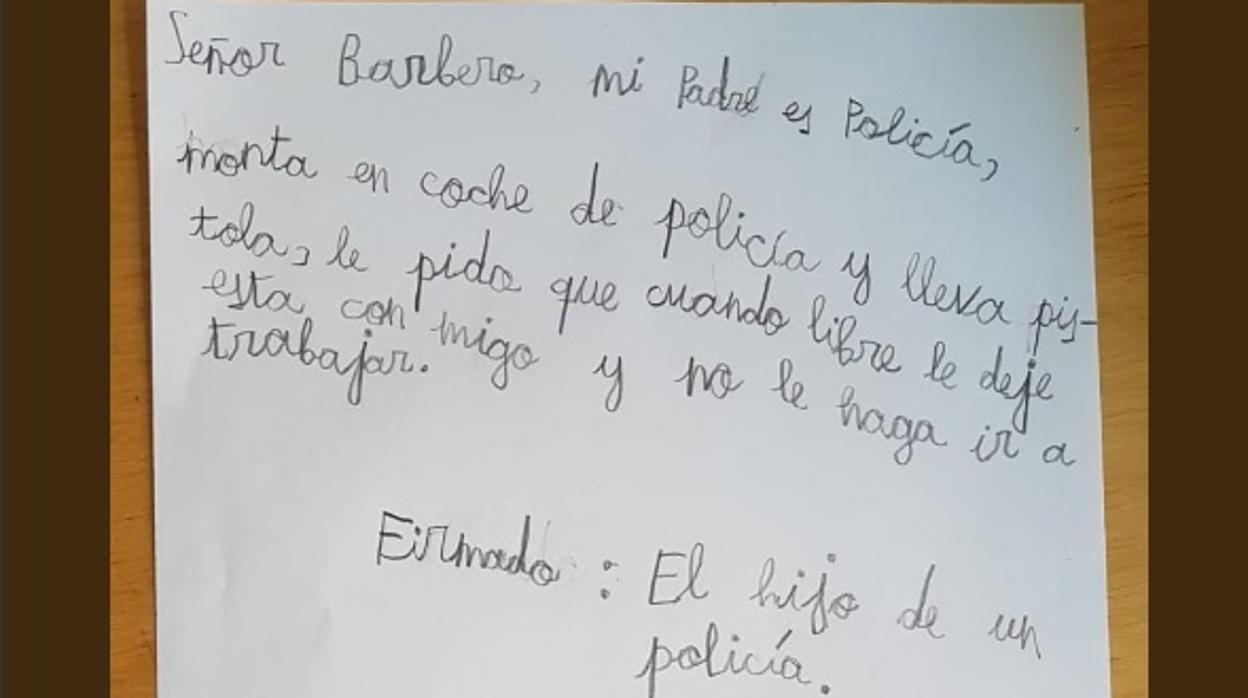 Señor Barbero, mi Padre es Policía,
monta en coche de policía y lleva pis-
tola, le pido que cuando libre le deje
esta con migo y no le haga ir a
trabajar.
Firmado : El hijo de un
policía.